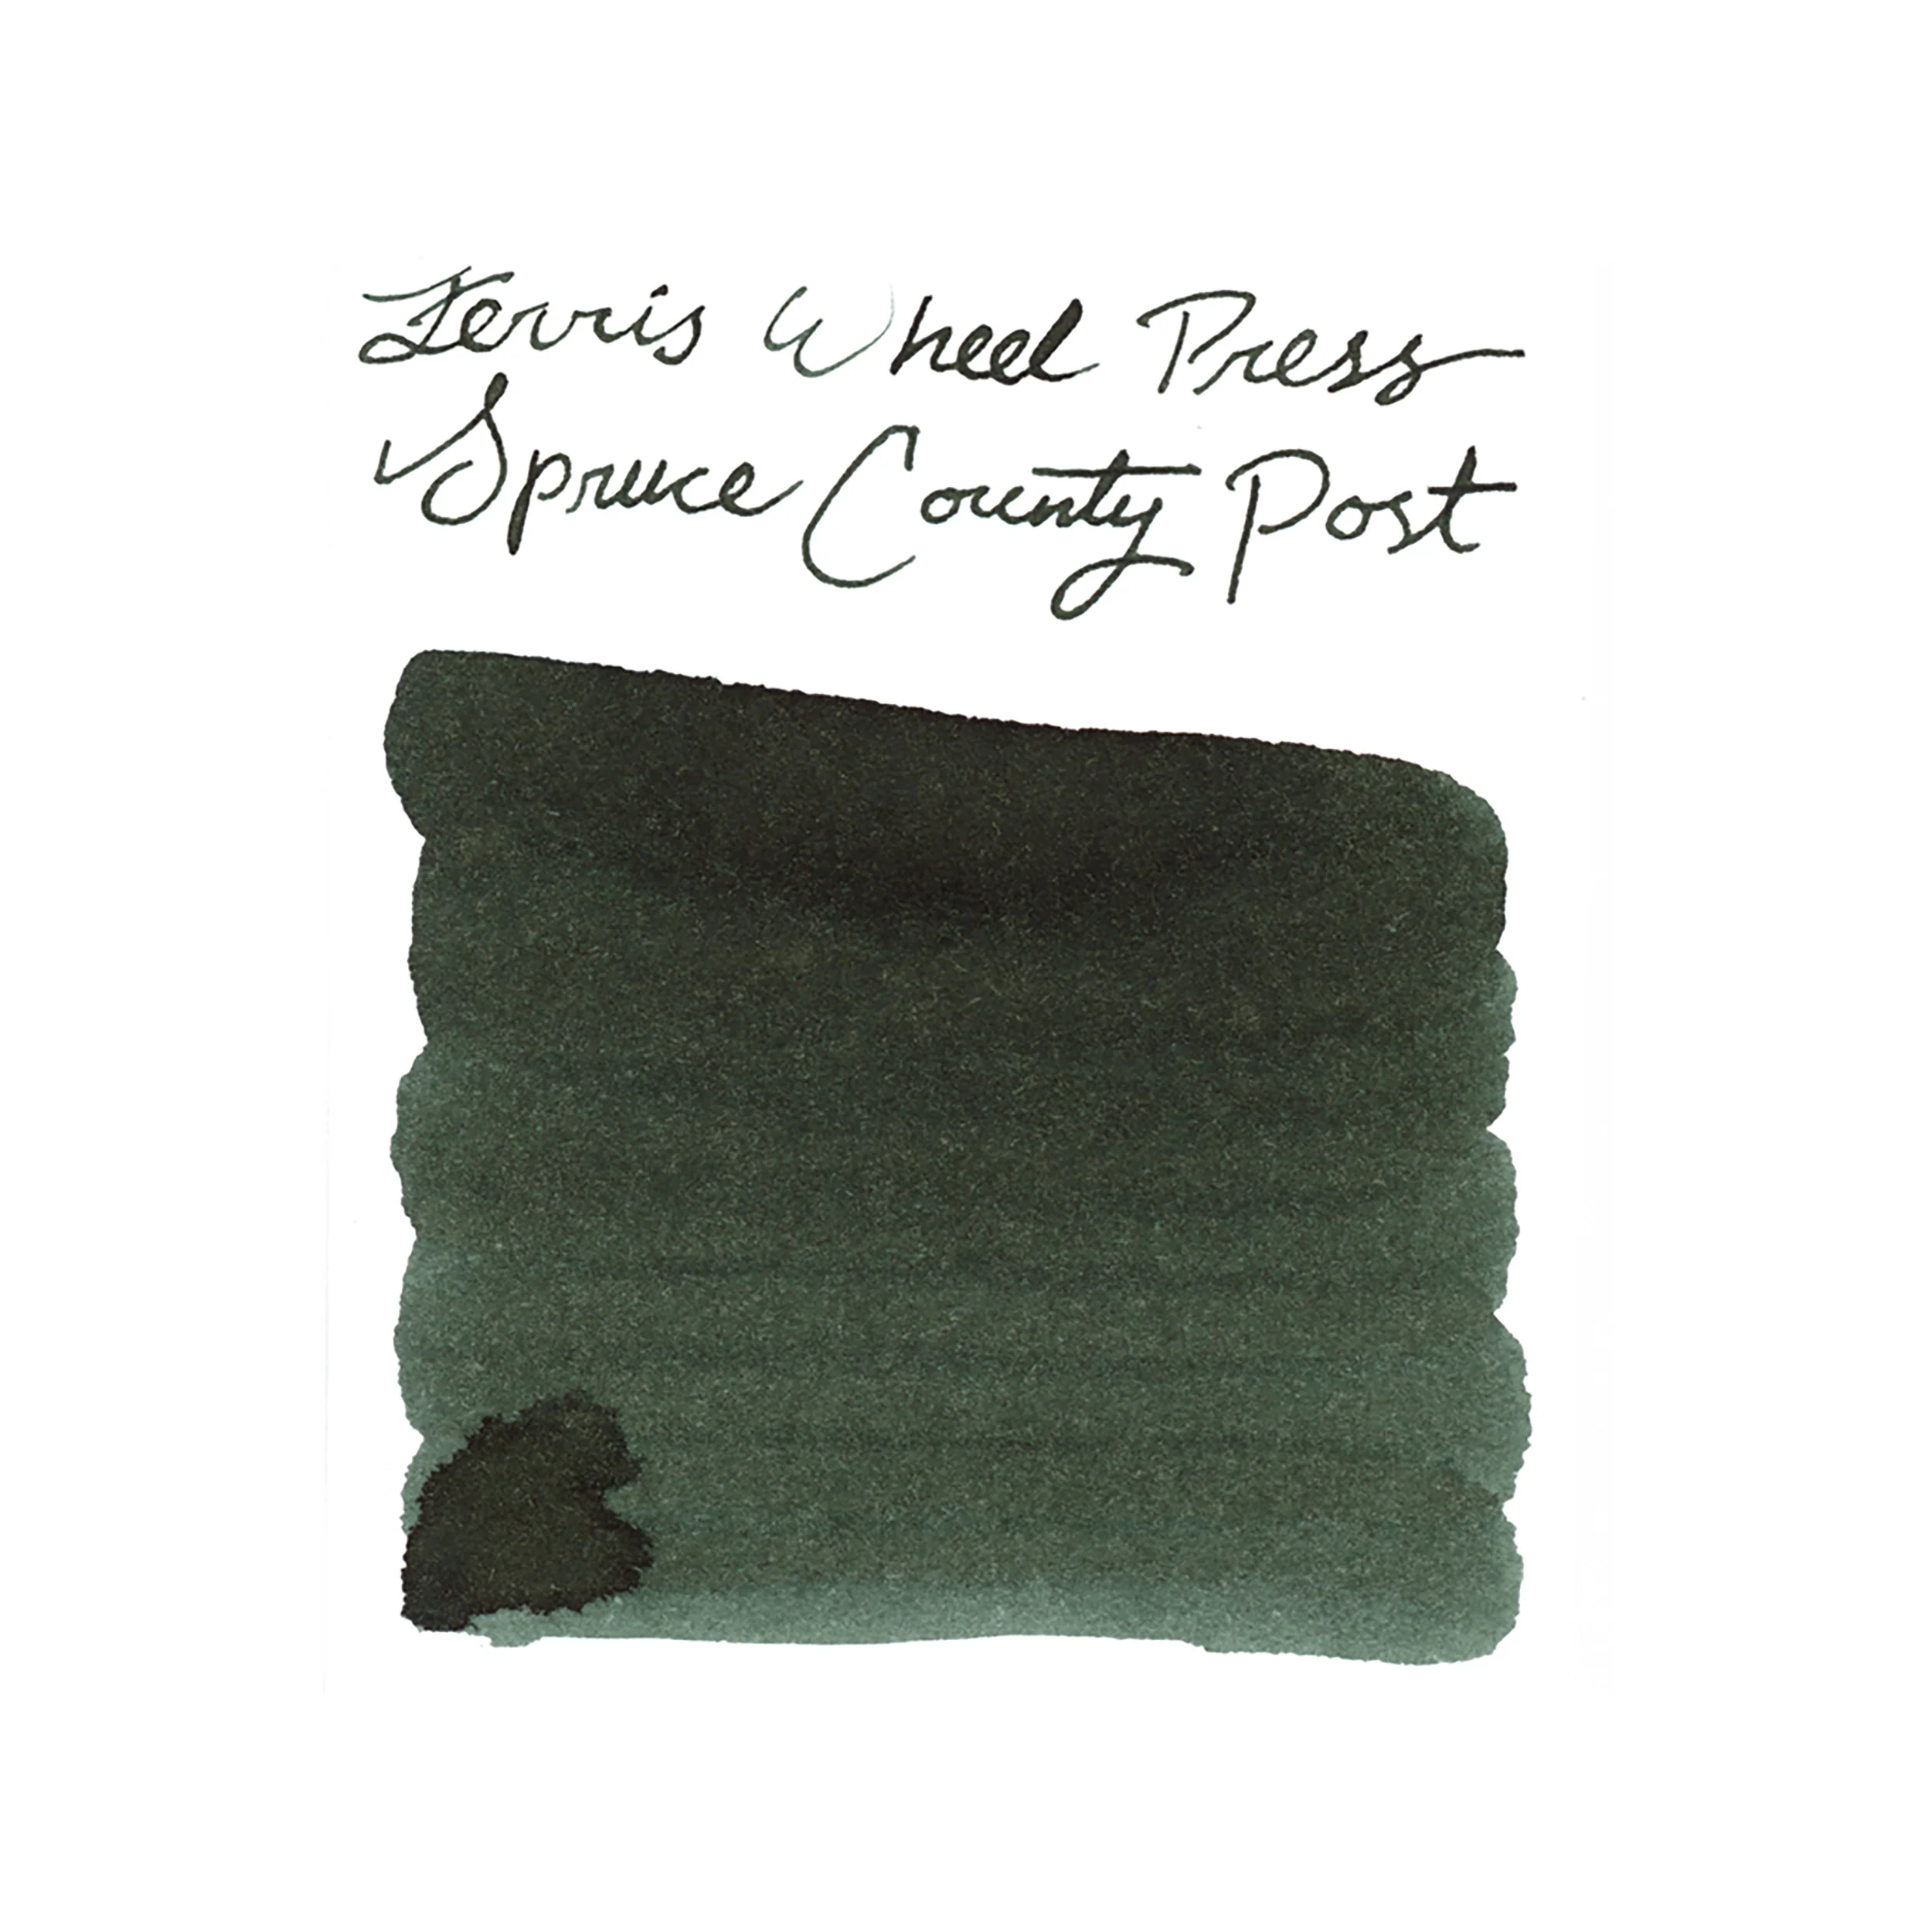 Ferris Wheel Press
Spruce County Post